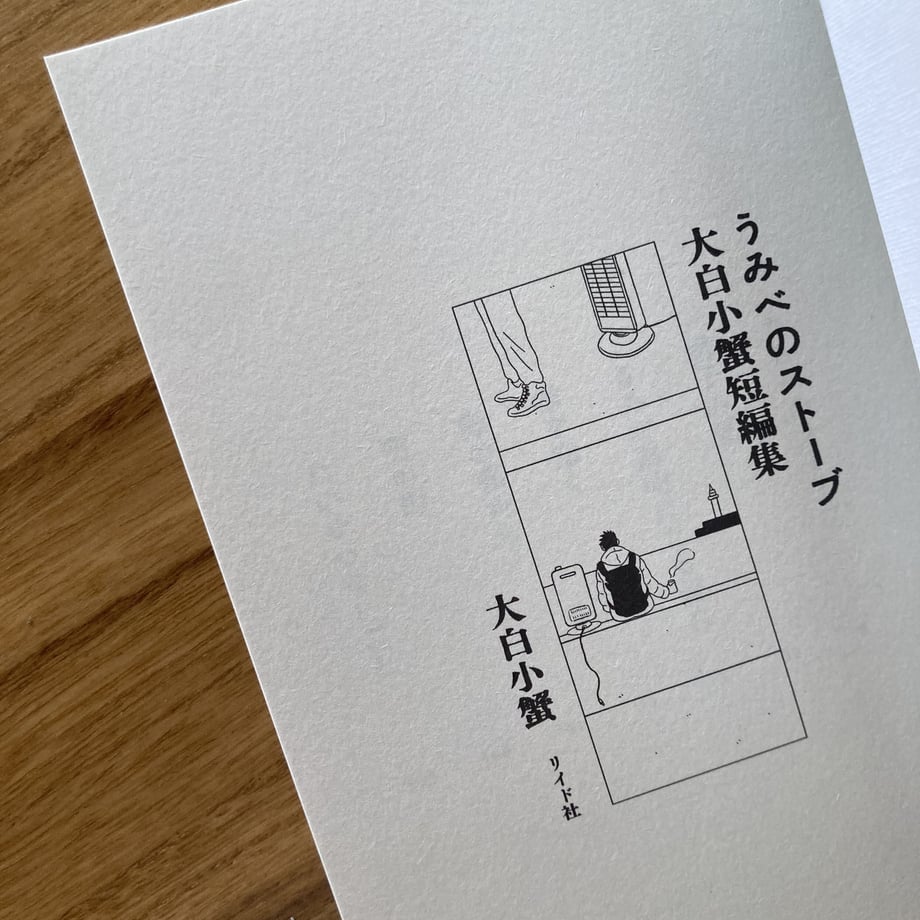 うみべのストーブ
大白小蟹短編集
大白小蟹
リイド社